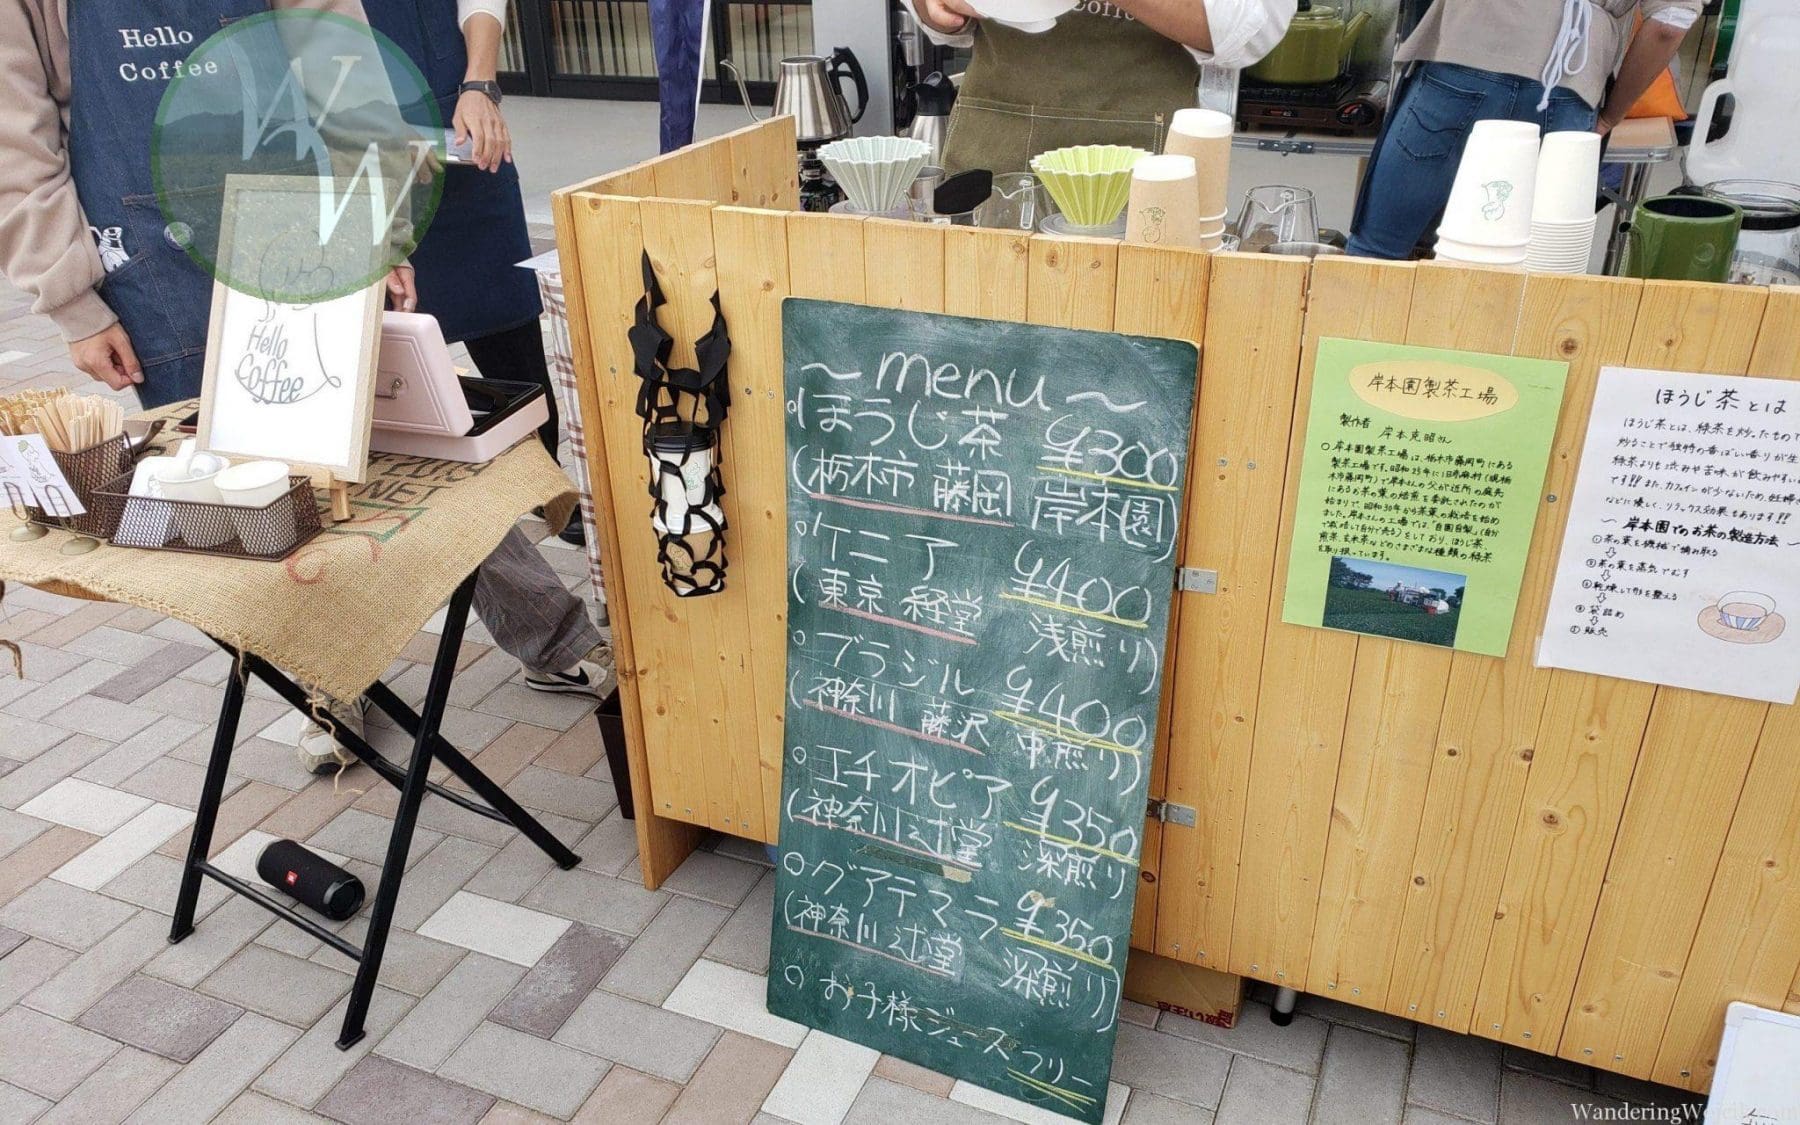 Hello
Coffee
WW
Hello
Coffee
NET
Coffee
～ menu ～
○ほうじ茶 ¥300
(栃木市 藤岡 岸本園)
○ケニア ¥400
(東京 経堂 浅煎り)
○ブラジル ¥400
(神奈川 藤沢 中煎り)
○エチオピア ¥350
(神奈川 辻堂 深煎り
○グアテマラ ¥350
(神奈川 辻堂 深煎り)
○お子様ジュース フリー
岸本園製茶工場
製作者 岸本克昭さん
○岸本園製茶工場は、栃木市藤岡町にある
製茶工場です。昭和25年に
市藤岡町)で岸本さんの父が近所の庭先
にあるお茶の葉の焙煎を委託されたのが
始まりで、昭和30年から茶葉の栽培を始め
ました。岸本さんの工場では、「自園自製」(自分
で栽培して自分で売る)をしており、ほうじ茶、
煎茶、玄米茶などのさまざまな種類の緑茶
を取り扱っています。
ほうじ茶とは
ほうじ茶とは、緑茶を炒ったもので
炒ることで独特の香ばしい香りが生
緑茶よりも渋みや苦味が飲みやすい
です!!また、カフェインが少ないため、妊婦さ
などに優しく、リラックス効果もあります!!
～ 岸本園でのお茶の製造方法 ～
①茶の葉を機械で摘み取る
②茶の葉を蒸気でむす
③乾燥して形を整える
④袋詰め
⑤販売
JBL
WanderingW